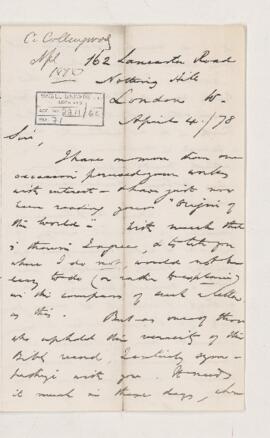 C. Collingwood
Apl
1878
162 Lancaster Road
Notting Hill
London W.
April 4. /78
Sir,
I have on more than one
occasion perused your works
with interest - & have just now
been reading your "Origin of
the world" - With much that
is therein I agree, & to tell you
where I do not, would not be
easy to do (or rather to explain)
in the compass of such a letter
as this. But as one of those
who uphold the veracity of the
Bible record, I entirely sym-
pathize with you.
it much in these days, when